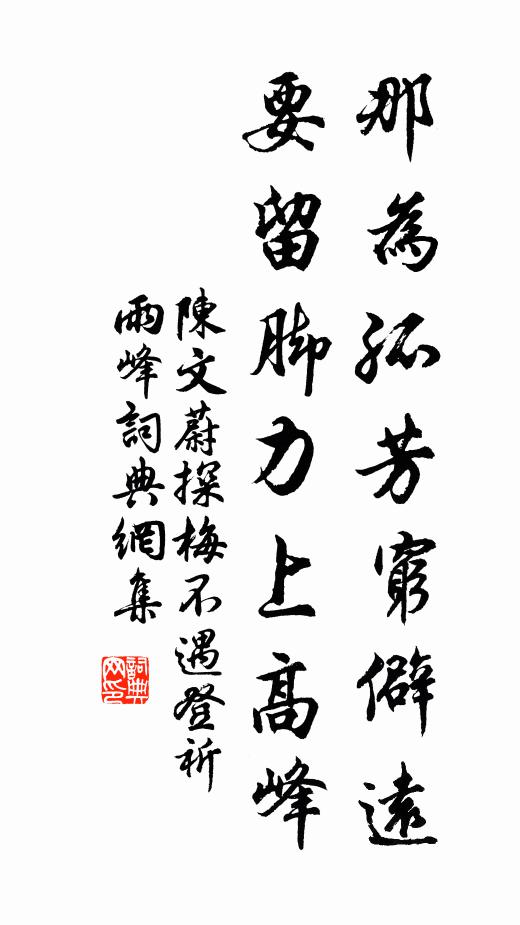 那為孤芳窮僻遠
要留脚力上高峰
陳文蔚探梅不遇登祈
雨峰詞典網集
詞典網印